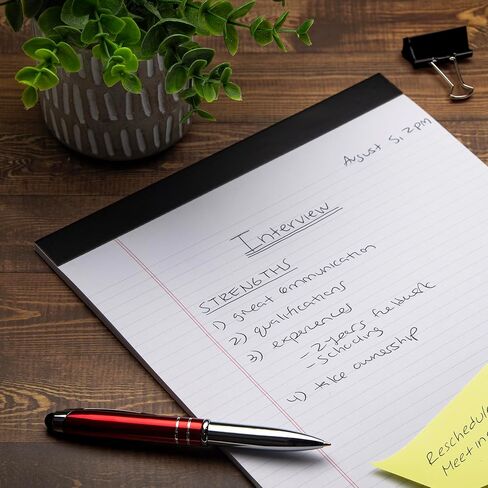 August 5, 2pm
Interview
STRENGTHS
1) great communication
2) qualifications
3) experiences
- 2 years fieldwork
- Schooling
4) take ownership
Reschedule
Meeting